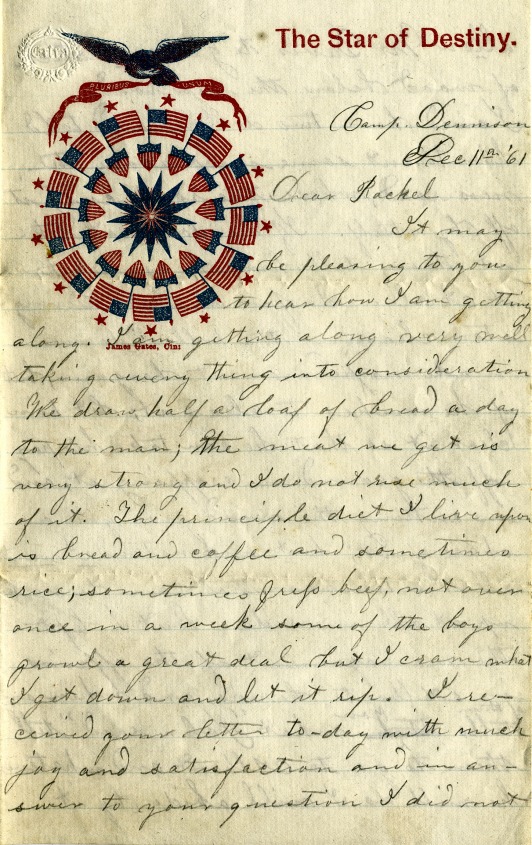 The Star of Destiny.
PLURIBUS UNUM
Camp. Dennison
Dec 11th '61
Dear Rachel
It may
be pleasing to you
to hear how I am getting
along. I am getting along very well
James Gates, Cin:
taking every thing into consideration
We draw half a loaf of bread a day
to the man; the meat we get is
very strong and I do not use much
of it. The principle diet I live upon
is bread and coffee and sometimes
rice; sometimes fresh beef, not over
once in a week some of the boys
growl a great deal but I cram what
I get down and let it rip. I re-
ceived your letter to-day with much
joy and satisfaction and in an-
swer to your question I did not